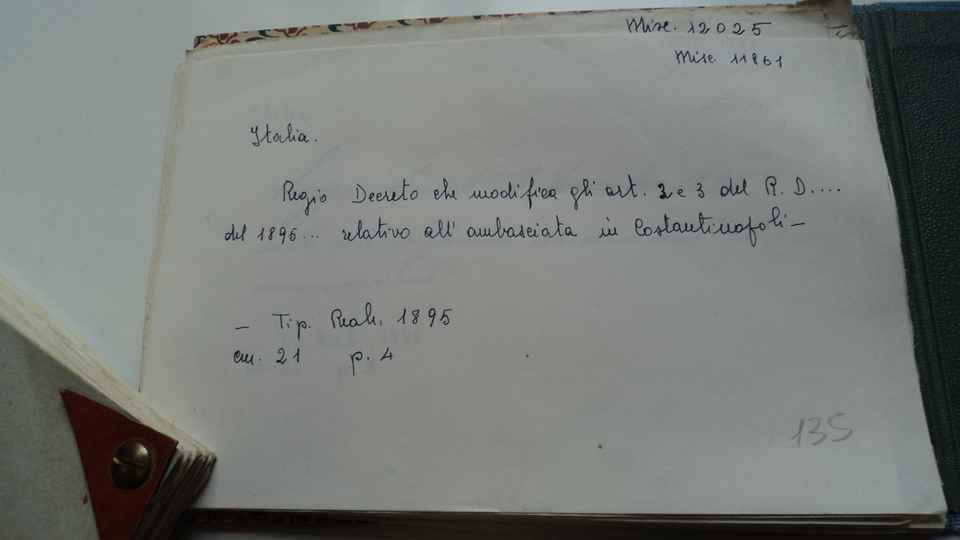 Misc. 12025
Misc. 11861
Italia.
Regio Decreto che modifica gli art. 2 e 3 del R. D....
del 1895... relativo all' ambasciata in Costantinopoli –
– Tip. Reale. 1895
cm. 21 p. 4
135